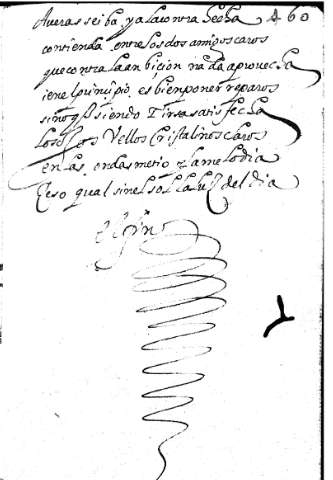 Averas se iba, ya la contra hecha 460
contienda entre los dos amigos caros
que contra la anbicion nada aprovecha
i en el principio, es bien poner reparos
sino q̃ siendo Tirsea satisfecha
los ojos Vellos Cristalinos claros
en las ondas metio y la melodia
Ceso qual sin el sol la luz del dia
el fin